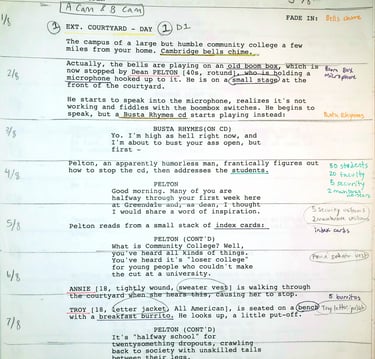 A Cam & B Cam
FADE IN: Bells chime
1/8
1 EXT. COURTYARD - DAY 1 D1
The campus of a large but humble community college a few
miles from your home. Cambridge bells chime.
2/8
Actually, the bells are playing on an old boom box, which is
now stopped by Dean PELTON [40s, rotund], who is holding a
microphone hooked up to it. He is on a small stage at the
front of the courtyard.
Boom Box
microphone
He starts to speak into the microphone, realizes it's not
working and fiddles with the boombox switches. He begins to
speak, but a Busta Rhymes cd starts playing instead:
Busta Rhymes
3/8
BUSTA RHYMES(ON CD)
Yo. I'm high as hell right now, and
I'm about to bust your ass open, but
first -
4/8
Pelton, an apparently humorless man, frantically figures out
how to stop the cd, then addresses the students.
80 students
20 faculty
5 security
PELTON
Good morning. Many of you are
halfway through your first week here
at Greendale and, as dean, I thought
I would share a word of inspiration.
5/8
Pelton reads from a small stack of index cards:
index cards
PELTON (CONT'D)
What is Community College? Well,
you've heard all kinds of things.
You've heard it's "loser college"
for young people who couldn't make
the cut at a university.
6/8
ANNIE [18, tightly wound, sweater vest] is walking through
the courtyard when she hears this, causing her to stop.
5 burritos
TROY [18, letter jacket, All American], is seated on a bench
with a breakfast burrito. He looks up, a little put-off.
Troy letter jacket
7/8
PELTON (CONT'D)
It's "halfway school" for
twentysomething dropouts, crawling
back to society with unskilled tails
between their legs.